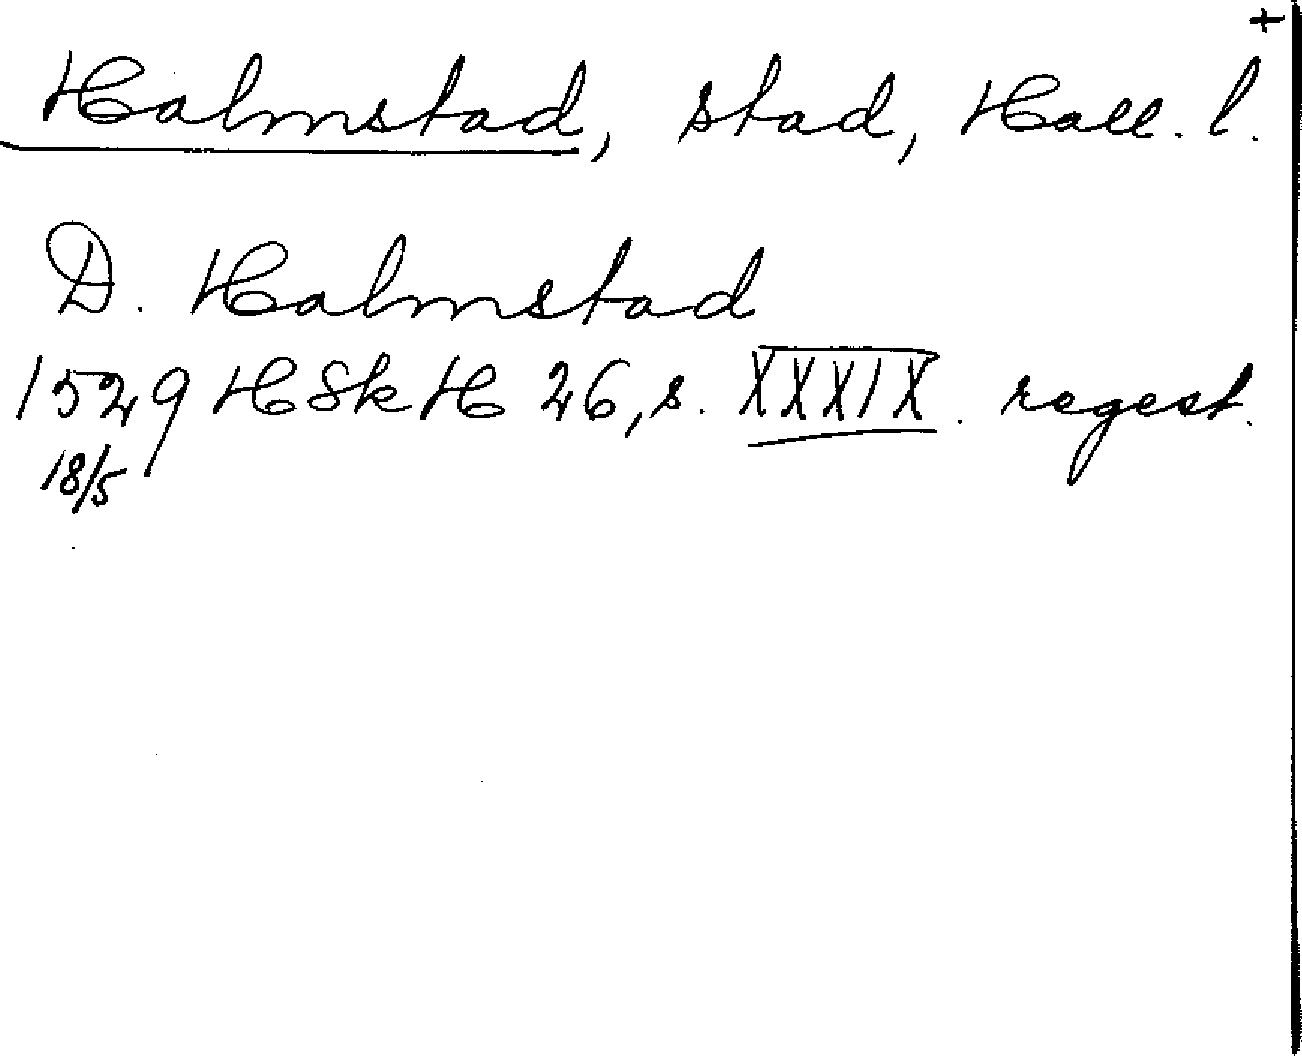 +
Halmstad, stad, Hall. l.
D. Halmstad
1529 HSkH 26, s. XXXIX. regest.
18/5